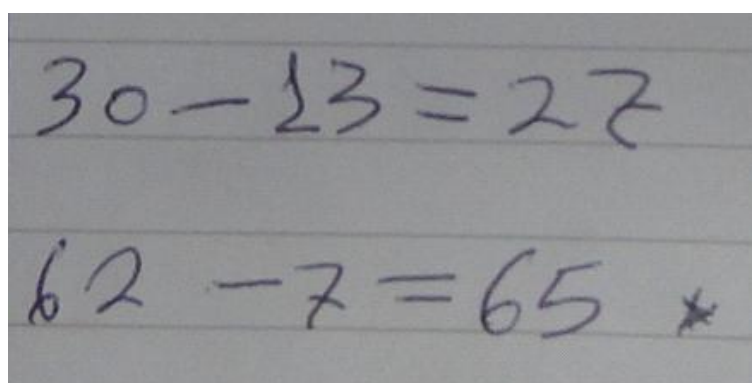 30 - 13 = 27
62 - 7 = 65 *